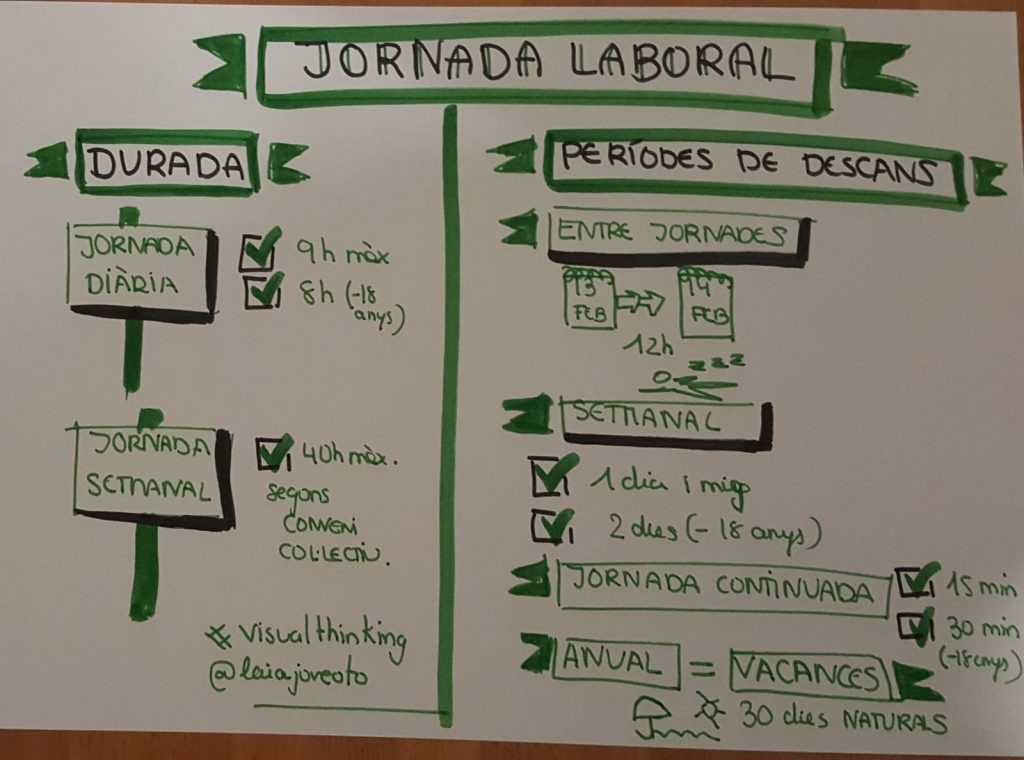 JORNADA LABORAL
DURADA
JORNADA
DIÀRIA
9h màx
8h (-18
anys)
JORNADA
SETMANAL
40h màx.
segons
CONVENI
COL·LECTIU.
# visualthinking
@laiajoveoto
PERÍODES DE DESCANS
ENTRE JORNADES
13
FEB
14
FEB
12h
z z z
SETMANAL
1 dia i mig
2 dies (- 18 anys)
JORNADA CONTINUADA
15 min
30 min
(-18 anys)
ANUAL = VACANCES
30 dies NATURALS